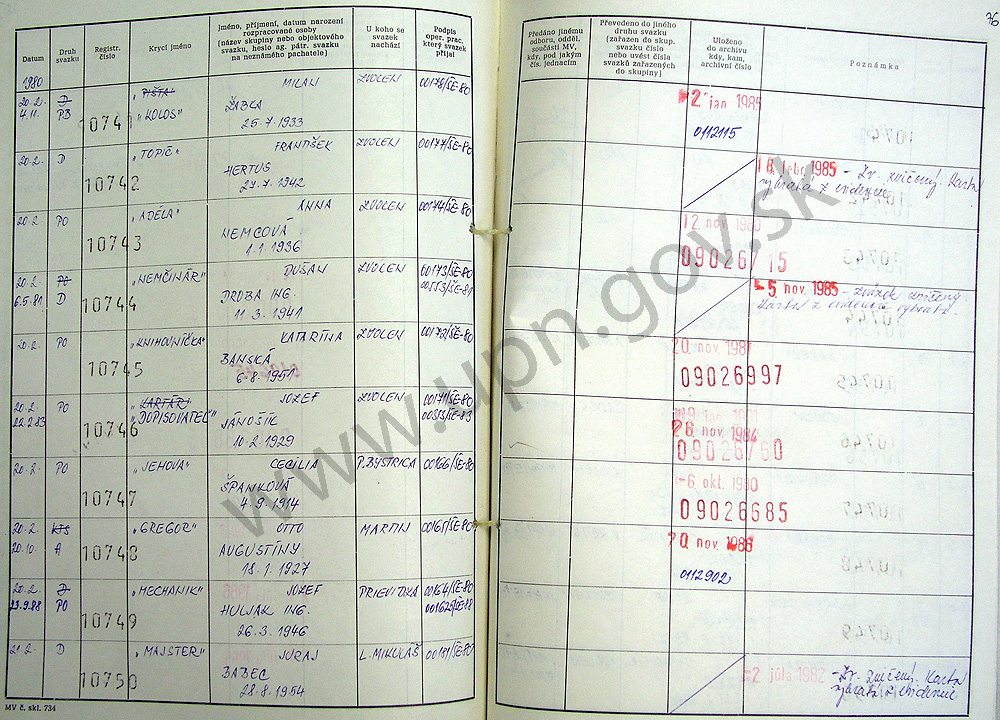 76
Datum
Druh svazku
Registr. číslo
Krycí jméno
Jméno, příjmení, datum narození
rozpracované osoby
(název skupiny nebo objektového
svazku, heslo ag. pátr. svazku
na neznámého pachatele)
U koho se
svazek
nachází
Podpis
oper. prac.
který svazek
přijal
Předáno jinému
odboru, odděl.
součásti MV,
kdy, pod jakým
čís. jednacím
Převedeno do jiného
druhu svazku
(zařazen do skup.
svazku číslo
nebo uvést čísla
svazků zařazených
do skupiny)
Uloženo
do archivu
kdy, kam,
archivní číslo
Poznámka
1980
20.2. D 10741 „PIŠTA" MILAN ZVOLEN 00178/SE-80 2. jan 1985
4.11. PB „KOLOS" ŽABLA
25.7.1933 0112115
20.2. D 10742 „TOPIČ" FRANTIŠEK ZVOLEN 00177/SE-80 febr 1985 - Zv. zničený. Karta
HERTUS vybratá z evidencie
27.7.1942
20.2. PO 10743 „ADÉLA" ANNA ZVOLEN 00174/SE-80 12. nov 1980
NEMCOVÁ 09026/15
1.1.1936
20.2. PO 10744 „NEMČINÁR" DUŠAN ZVOLEN 00173/SE-80 5. nov 1985 - Zväzok zničený
6.5.81 D DROBA ING. Karta z evidencie vybratá.
11.3.1941
20.2. PO 10745 „KNIHOVNÍČKA" KATARÍNA ZVOLEN 00172/SE-80 20. nov
BANSKÁ 09026997
6.8.1951
20.2. PO 10746 JOZEF ZVOLEN 00171/SE-80
22.2.83 „DOPISOVATEĽ" JÁNOŠÍC 00515/SE-83 26. nov 1984
10.2.1929 09026/60
20.2. PO 10747 „JEHOVA" CECÍLIA P. BYSTRICA 00166/SE-80 -6. okt. 1980
ŠPANKOVÁ 09026685
4.9.1914
20.2. KTS 10748 „GREGOR" OTTO MARTIN 00165/SE-80 nov 1986
20.10. A AUGUSTÍNY
18.1.1927 0112902
20.2. D 10749 „MECHANIK" JOZEF PRIEVIDZA 00164/SE-80
PO HULJAK ING.
26.3.1946
21.2. D 10750 „MAJSTER" JURAJ L. MIKULÁŠ 00181/SE-80
BABEC 2. júla 1982 - Zv. zničený. Karta
28.8.1954 vybratá z evidencie
MV č. skl. 734
www.upn.gov.sk